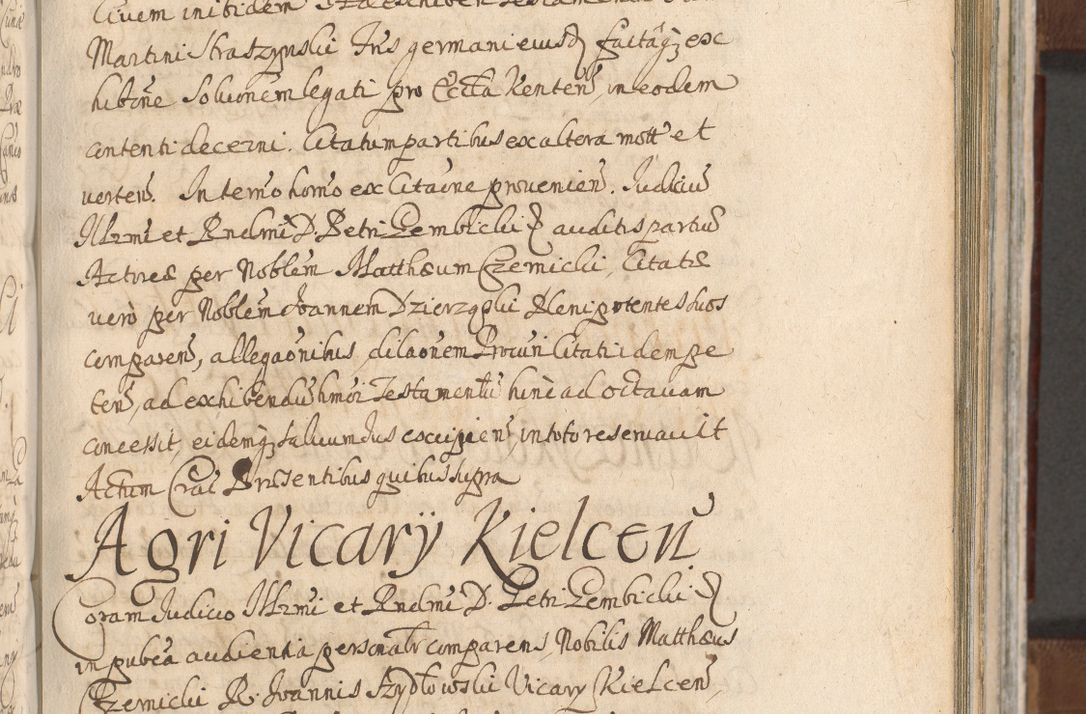 Civem inibidem
Martini Straszynski Frīs germani eiusd factāq; ex
hibōne Solutionem legati pro Eccla Kenten̄, in eodem
contenti decerni. Citatum partibus ex altera mott̄ et
verten̄. In termō homō ex Citāōne provenien̄. Judiciū
Illrm̄i et Rndm̄i D. Petri Gembicki auditis partiū
Actoreæ per Noblēm Matthæum Czernicki, Citatæ
verò per Noblēm Joannem Dzierzgski Plenipotentes suos
comparen̄, allegaōnibus, dilaōnem Procur̄i Citati idem pe
ten̄, ad exhibendū hm̄oi Testamentū hinc ad octavam
concessit, eidemq; salvum Jus excipien̄, in toto reservavit
Actum Crac̄ Præsentibus quibus supra
Agri Vicarÿ Kielcen̄
Coram Judicio Illrm̄i et Rndm̄i D. Petri Gembicki
in publcā audientia personālr comparens, Nobilis Matthæus
Czernicki R. Joannis Szydłowski Vicarÿ Kielcen̄,